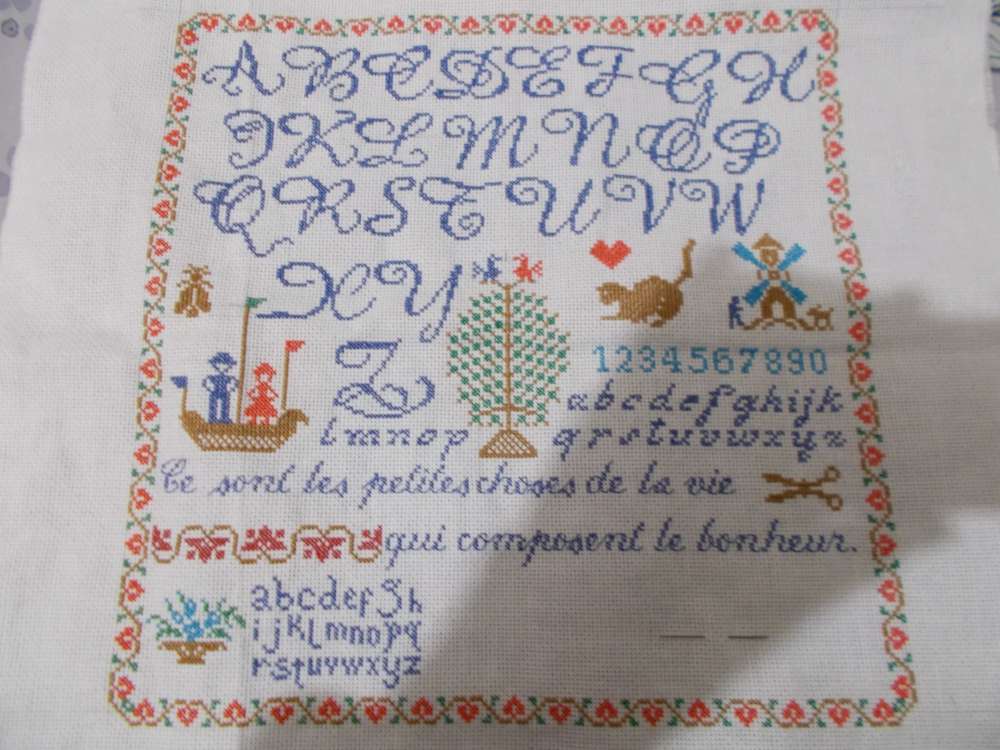 A B C D E F G H
I K L M N O P
Q R S T U V W
X Y
Z
1234567890
a b c d e f g h i j k
l m n o p q r s t u v w x y z
Ce sont les petites choses de la vie
qui composent le bonheur.
abcdefgh
ijklmnopq
rstuvwxyz